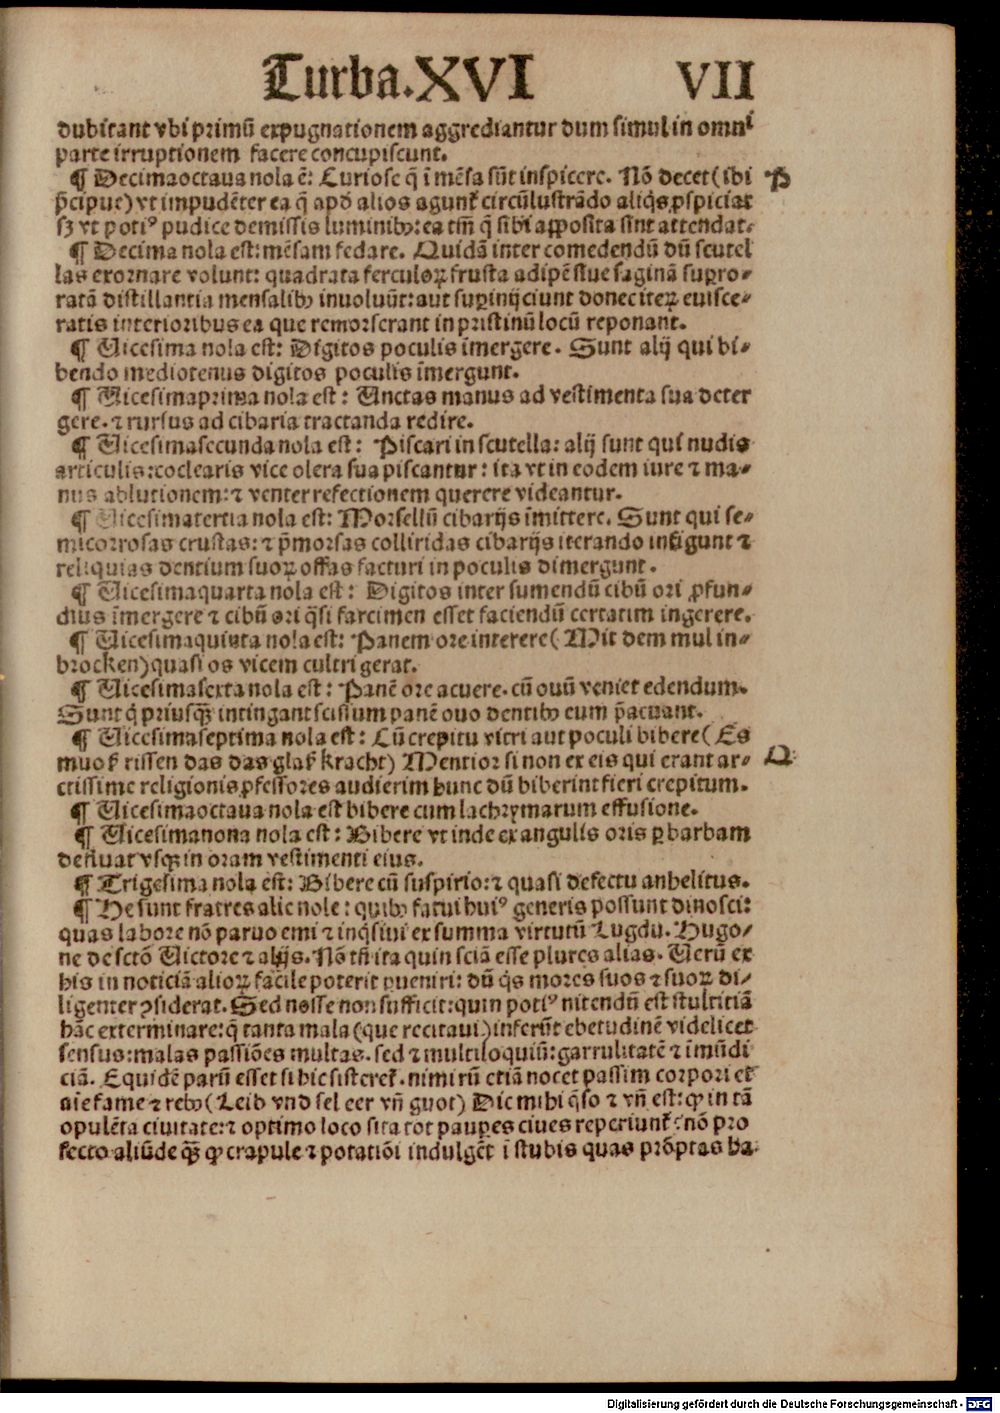 Turba.XVI VII
dubitant vbi primū expugnationem aggrediantur dum simul in omni
parte irruptionem facere concupiscunt.
¶ Decimaoctaua nola ē: Curiose q̄ ī mēsa sūt inspicere. Nō decet (ibi P
p̄cipue) vt impudēter ea q̄ apd̕ alios agunt᷑ circūlustrādo aliq̄s ꝑspiciat
sꝫ vt poti⁹ pudice demissis luminibꝫ: ea tm̄ q̄ sibi apposita sint attendat.
¶ Decima nola est: mēsam fedare. Quidā inter comedendū dū scutel
las exornare volunt: quadrata ferculoꝝ frusta adipē siue saginā supro⸗
ratā distillantia mensalibꝫ inuoluūt: aut supinijciunt donec iteꝝ euisce⸗
ratis interioribus ea que remorserant in pristinū locū reponant.
¶ Uicesima nola est: Digitos poculis īmergere. Sunt alij qui bi⸗
bendo mediotenus digitos poculis īmergunt.
¶ Uicesimaprima nola est: Unctas manus ad vestimenta sua deter
gere. ⁊ rursus ad cibaria tractanda redire.
¶ Uicesimasecunda nola est: Piscari in scutella: alij sunt qui nudis
articulis: coclearis vice olera sua piscantur: ita vt in eodem iure ⁊ ma⸗
nus ablutionem: ⁊ venter refectionem querere videantur.
¶ Uicesimatertia nola est: Morsellū cibarijs īmittere. Sunt qui se⸗
micorrosas crustas: ⁊ p̄morsas colliridas cibarijs iterando infigunt ⁊
reliquias dentium suoꝝ offas facturi in poculis dimergunt.
¶ Uicesimaquarta nola est: Digitos inter sumendū cibū ori ꝓfun⸗
dius īmergere ⁊ cibū ori q̄si farcimen esset faciendū certatim ingerere.
¶ Uicesimaquinta nola est: Panem ore interere (Mit dem mul in⸗
brocken) quasi os vicem cultri gerat.
¶ Uicesimasexta nola est: Panē ore acuere. cū ouū veniet edendum.
Sunt q̄ priusqꝫ intingant scissum panē ouo dentibꝫ eum p̄acuant.
¶ Uicesimaseptima nola est: Cū crepitu vitri aut poculi bibere (Es
muoß rissen das das glaß kracht) Mentior si non ex eis qui erant ar⸗ Q
ctissime religionis ꝓfessores audierim hunc dū biberint fieri crepitum.
¶ Uicesimaoctaua nola est bibere cum lachrymarum effusione.
¶ Uicesimanona nola est: Bibere vt inde ex angulis oris ꝑ barbam
defluat vsqꝫ in oram vestimenti eius.
¶ Trigesima nola est: Bibere cū suspirio: ⁊ quasi defectu anhelitus.
¶ He sunt fratres alie nole: quibꝫ fatui hui⁹ generis possunt dinosci:
quas labore nō paruo emi ⁊ inq̄siui ex summa virtutū Lugdu. Hugo⸗
ne de sctō Uictore ⁊ alijs. Nō tn̄ ita quin sciā esse plures alias. Uerū ex
his in noticiā alioꝝ facile poterit ꝓueniri: dū q̄s mores suos ⁊ suoꝝ di⸗
ligenter ꝯsiderat. Sed nosse non sufficit: quin poti⁹ nitendū est stultitiā
hāc exterminare: q̄ tanta mala (que recitaui) inferūt ebetudinē videlicet
sensus: malas passiōes multas. sed ⁊ multiloquiū: garrulitatē ⁊ īmūdi
ciā. Equidē parū esset si hic sisteret᷑. nimirū etiā nocet passim corpori et
aīe fame ⁊ rebꝫ (Leib vnd sel eer vñ guot) Dic mihi q̄so ⁊ vn̄ est: ꝙ in tā
opulēta ciuitate: ⁊ optimo loco sita tot paupes ciues reperiunt᷑: nō pro
fecto aliūde qꝫ ꝙ crapule ⁊ potatiōi indulgēt ī stubis quas prōptas ha⸗
Digitalisierung gefördert durch die Deutsche Forschungsgemeinschaft - DFG